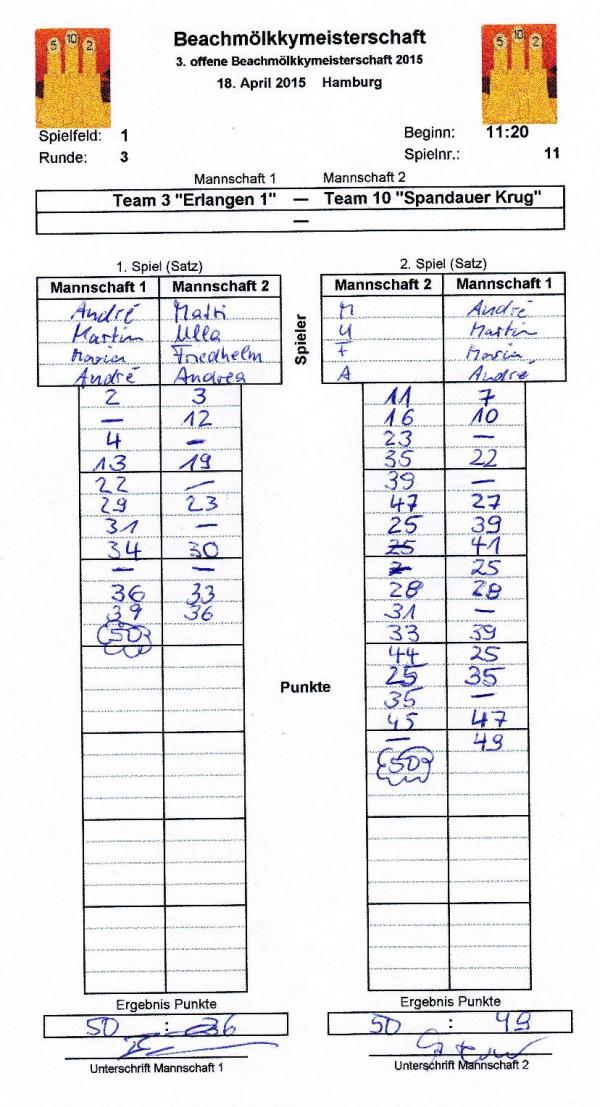 5 10 2
5 10 2
Beachmölkkymeisterschaft
3. offene Beachmölkkymeisterschaft 2015
18. April 2015 Hamburg
Spielfeld: 1 Beginn: 11:20
Runde: 3 Spielnr.: 11
Mannschaft 1 Mannschaft 2
Team 3 "Erlangen 1" — Team 10 "Spandauer Krug"
—
1. Spiel (Satz)
Mannschaft 1 Mannschaft 2
André
Martin Ulla
Maria Friedhelm
André Andrea
2 3
— 12
4 —
13 19
22 —
29 23
31 —
34 30
— —
36 33
39 36
50
Spieler
Punkte
2. Spiel (Satz)
Mannschaft 2 Mannschaft 1
M André
U Martin
F Maria
A André
11 7
16 10
23 —
35 22
39 —
47 27
25 39
25 41
25
28 28
31 —
33 39
44 25
25 35
35 —
45 47
— 49
50
Ergebnis Punkte
50 : 36
Unterschrift Mannschaft 1
Ergebnis Punkte
50 : 49
Unterschrift Mannschaft 2